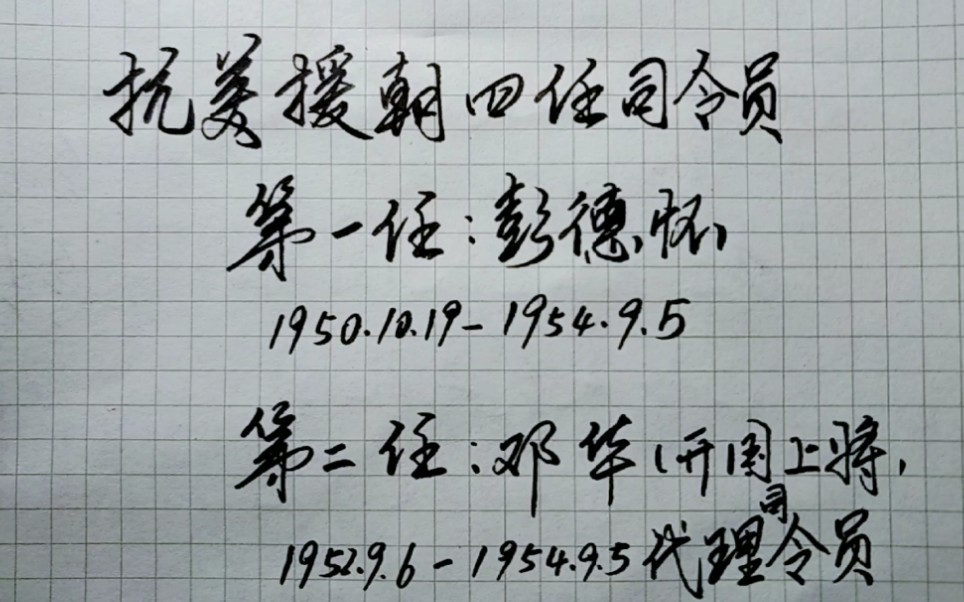 抗美援朝四任司令员
第一任:彭德怀
1950.10.19-1954.9.5
第二任:邓华(开国上将,
1952.9.6-1954.9.5代理司令员